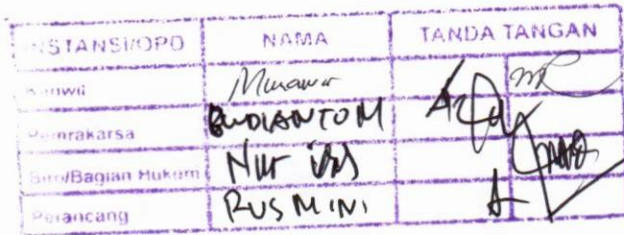 INSTANSI/OPD NAMA TANDA TANGAN
Kanwil Munawir
Pemrakarsa BUDIANTO M
Biro/Bagian Hukum NUR
Perancang RUSMINI